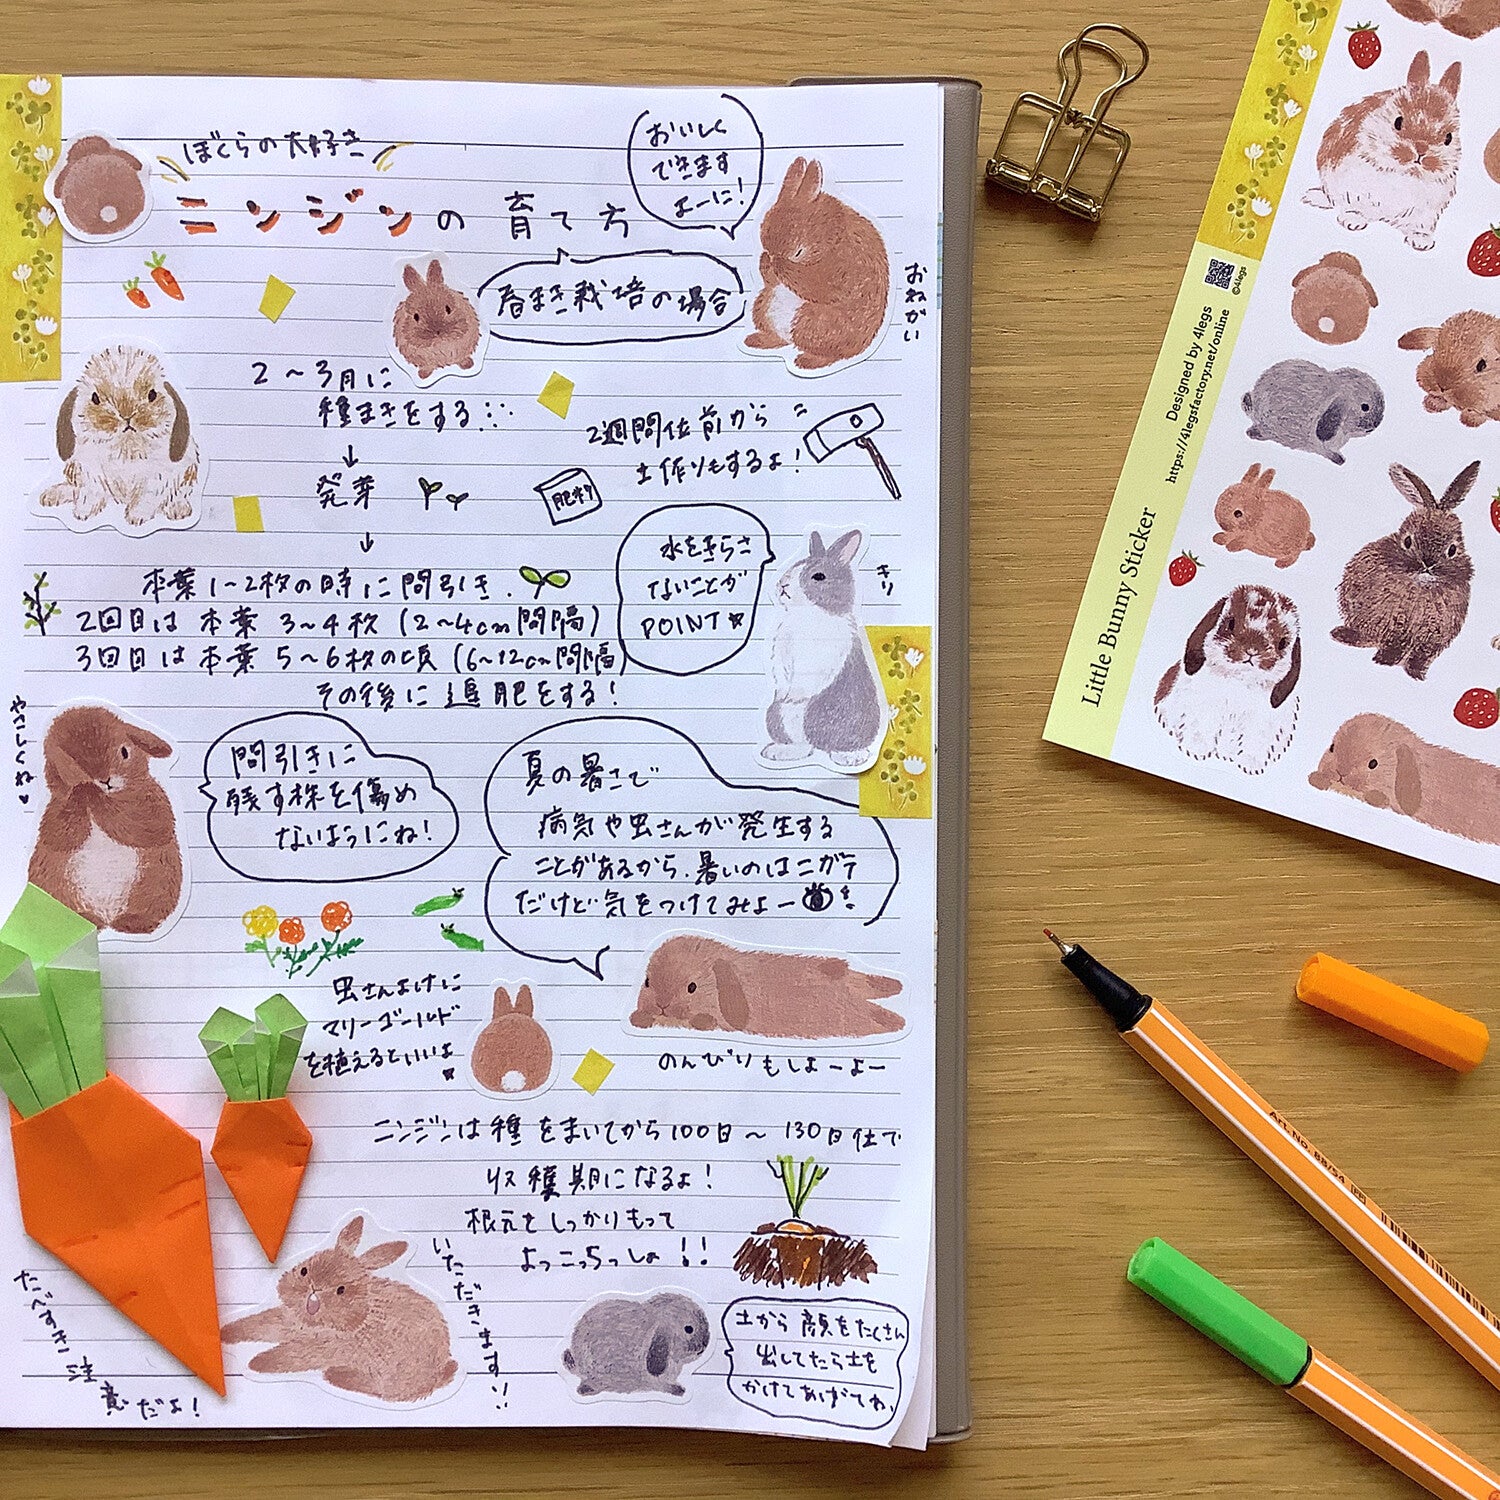 ぼくらの大好き
ニンジンの育て方
おいしく
できます
よーに!
おねがい
春まき栽培の場合
2〜3月に
種まきをする
↓
発芽
↓
2週間位前から
土作りもするよ!
肥料
本葉1〜2枚の時に間引き.
2回目は本葉3〜4枚(2〜4cm間隔)
3回目は本葉5〜6枚の頃(6〜12cm間隔)
その後に追肥をする!
水をきらさ
ないことが
POINT
キリ
やさしくね♥
間引きに
残す株を傷め
ないようにね!
夏の暑さで
病気や虫さんが発生する
ことがあるから、暑いのはニガテ
だけど気をつけてみよー
虫さんよけに
マリーゴールド
を植えるといいよ
のんびりもしよーよー
ニンジンは種をまいてから100日〜130日位で
収穫期になるよ!
根元をしっかりもって
よっこらっしょ!!
いただきます
たべすぎ注意だよ!
土から顔をたくさん
出してたら土を
かけてあげてね、
Little Bunny Sticker
Designed by 4legs
https://4legsfactory.net/online
©4legs
Art. No. 88/54